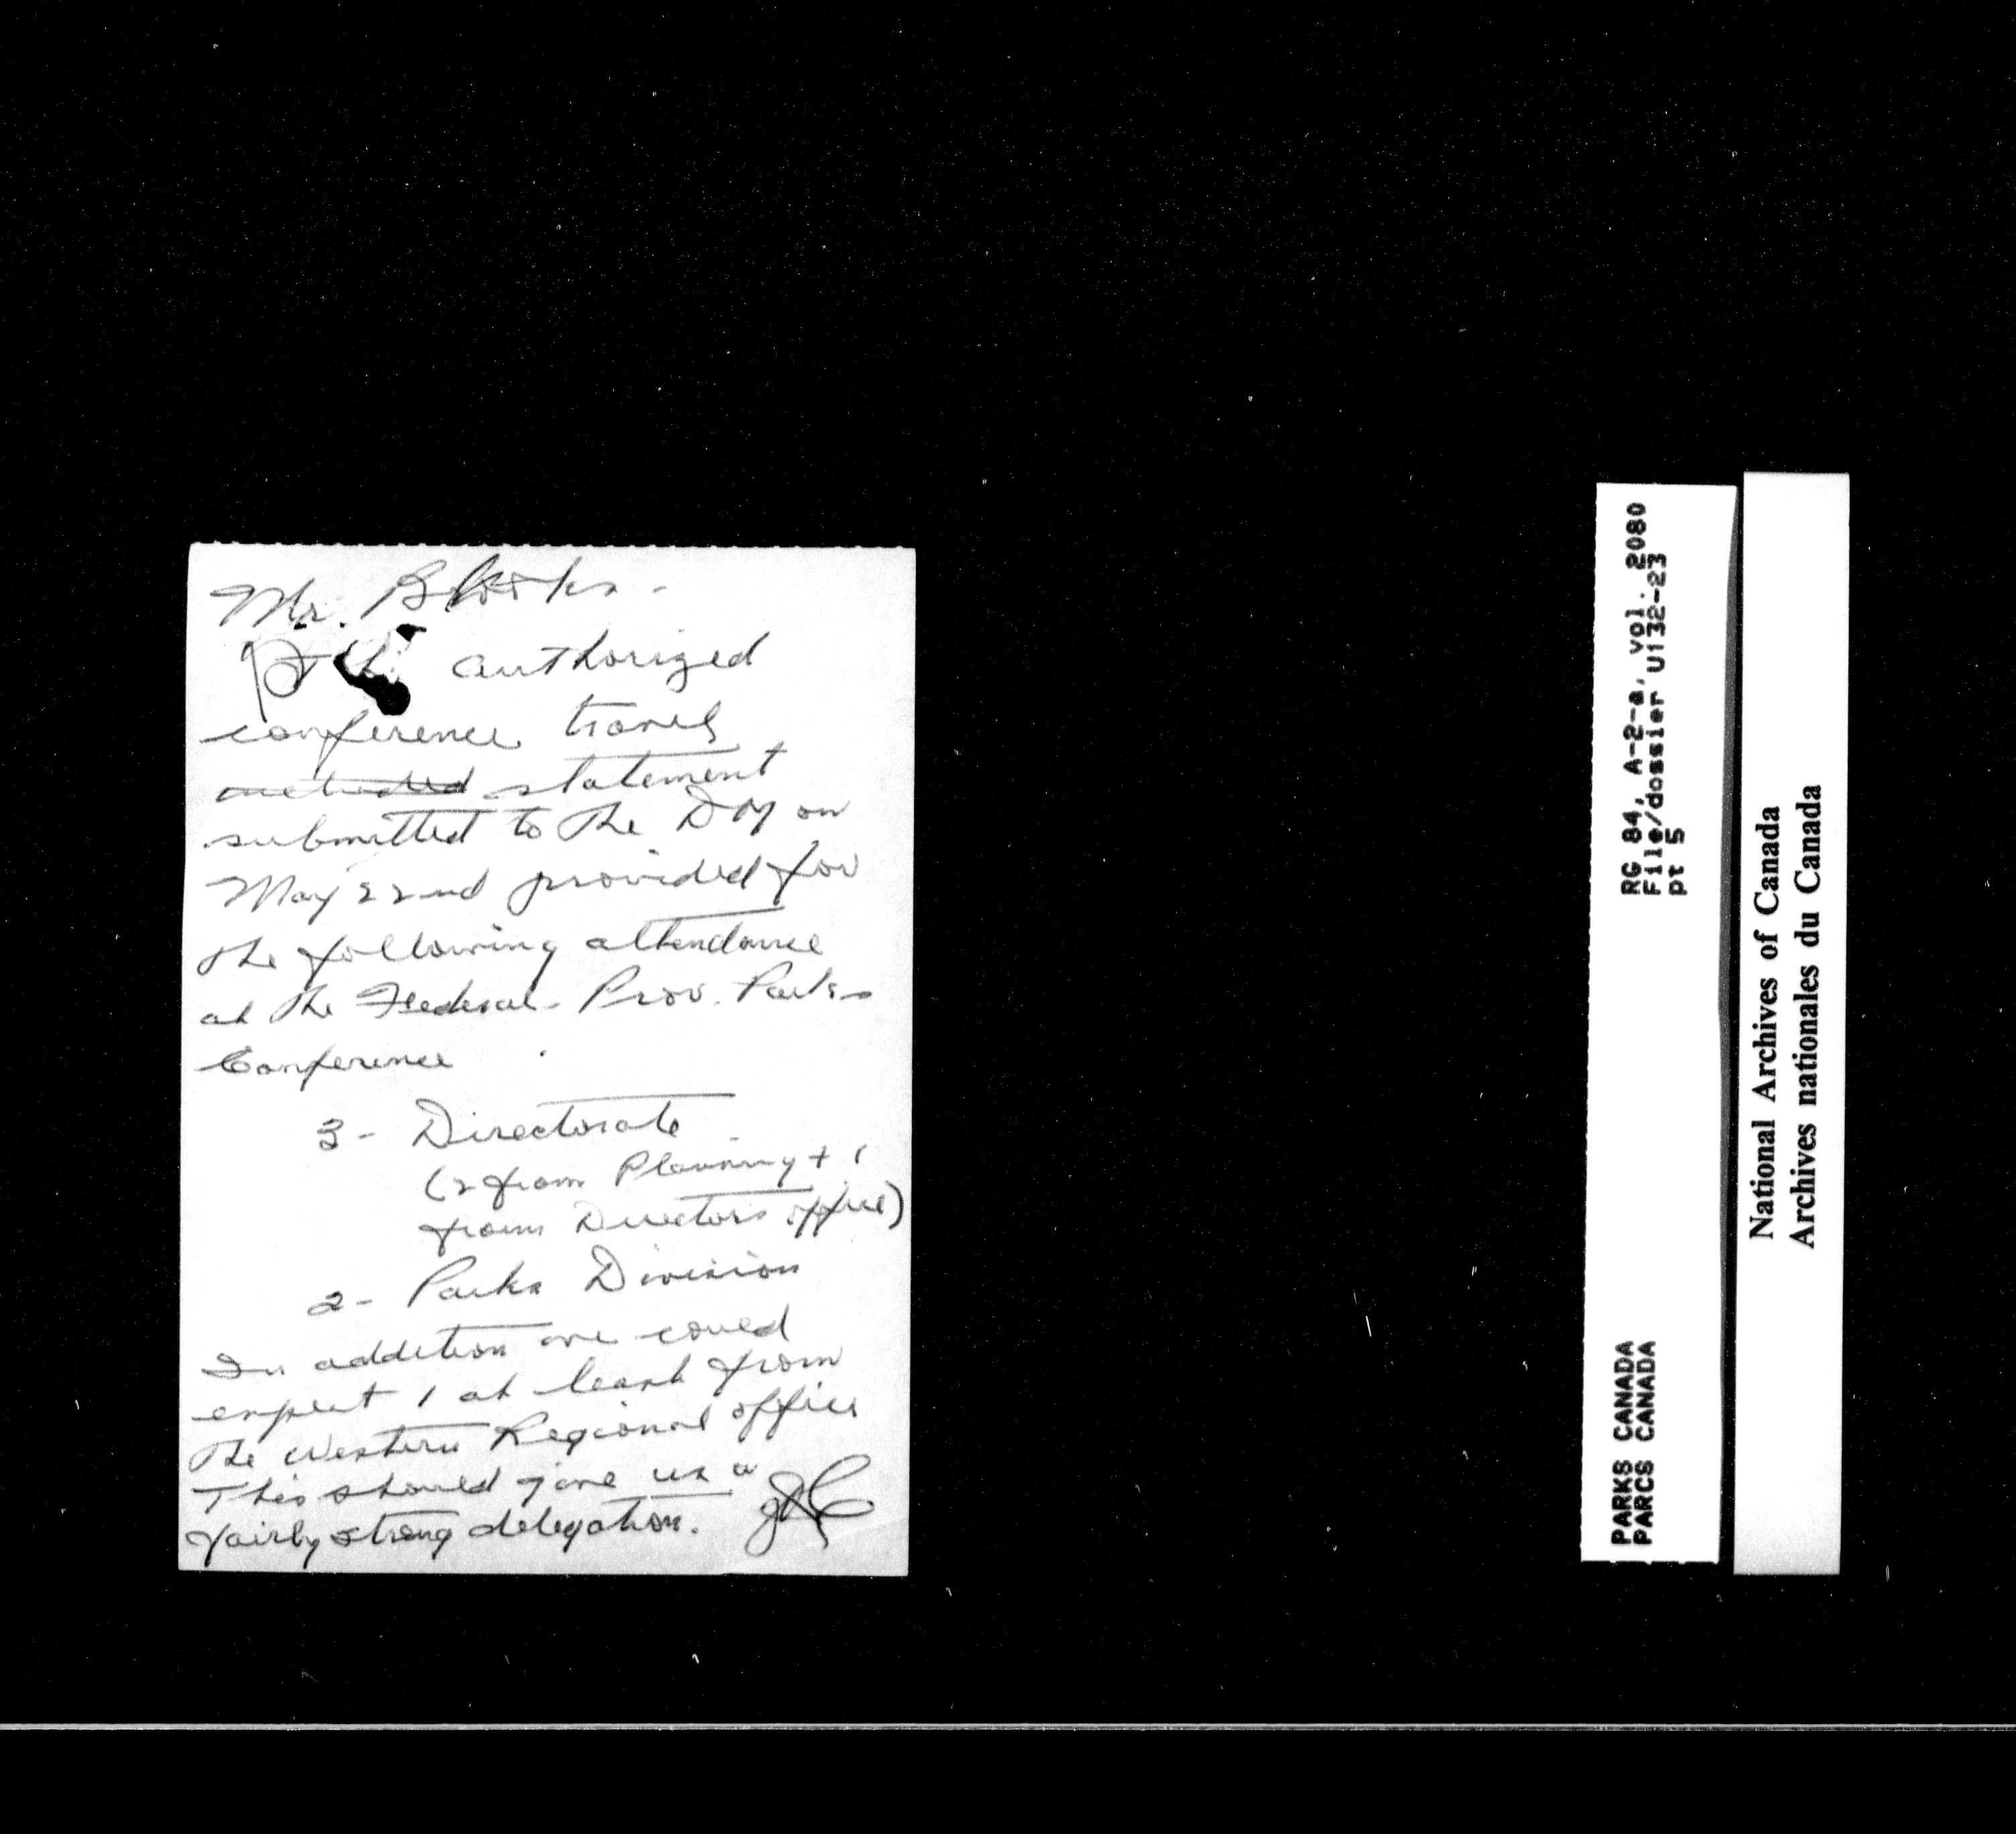 Mr. Brooks -
The authorized
conference travel
included statement
submitted to the DM on
May 22nd provided for
the following attendance
at the Federal-Prov. Parks
Conference
3 - Directorate
(2 from Planning + 1
from Directors office)
2 - Parks Division
In addition we could
expect 1 at least from
the Western Regional office
This should give us a
fairly strong delegation.
RG 84, A-2-a, vol. 2080
File/dossier U132-23
pt 5
PARKS CANADA
PARCS CANADA
National Archives of Canada
Archives nationales du Canada